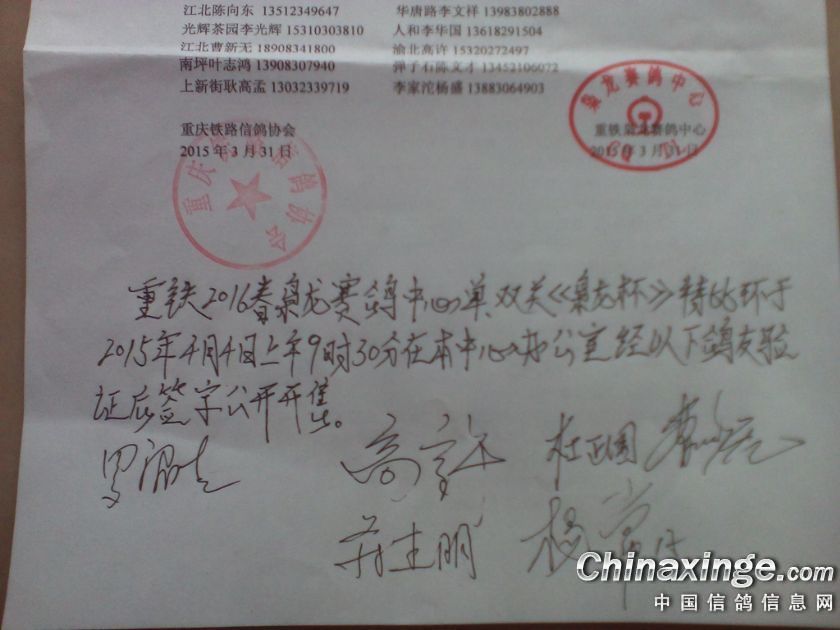 江北陈向东 13512349647 华唐路李文祥 13983802888
光辉茶园李光辉 15310303810 人和李华国 13618291504
江北曹新无 18908341800 渝北高许 15320272497
南坪叶志鸿 13908307940 弹子石陈文才 13452106072
上新街耿高孟 13032339719 李家沱杨盛 13883064903
枭龙赛鸽中心
重庆铁路信鸽协会 重铁枭龙赛鸽中心
2015年3月31日 2015年3月31日
重庆 鸽协会
重铁2016春枭龙赛鸽中心单.双关《枭龙杯》特比环于
2015年4月4日上午9时30分在本中心办公室经以下鸽友验
证后签字公开开售。
高许 杜正国
生明 杨
Chinaxinge.com
中国信鸽信息网